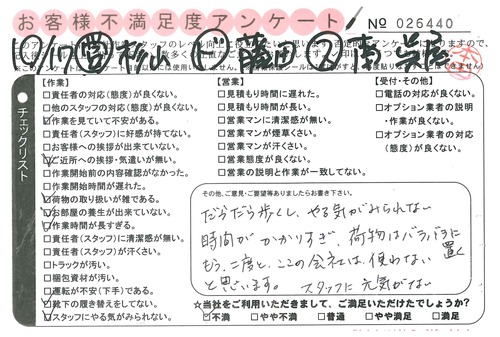 お客様不満足度アンケート
No 026440
チェックリスト
【作業】
□責任者の対応(態度)が良くない。
□他のスタッフの対応(態度)が良くない。
□作業を見ていて不安がある。
□責任者(スタッフ)に好感が持てない。
□お客様への挨拶が出来ていない。
□ご近所への挨拶・気遣いが無い。
□作業開始前の内容確認がなかった。
□作業開始時間が遅れた。
□荷物の取り扱いが雑である。
□お部屋の養生が出来ていない。
□作業時間が長すぎる。
□責任者(スタッフ)に清潔感が無い。
□責任者(スタッフ)が汗くさい。
□トラックが汚い。
□梱包資材が汚い。
□運転が不安(下手)である。
□靴下の履き替えをしてない。
□スタッフにやる気がみられない。
【営業】
□見積もり時間に遅れた。
□見積もり時間が長い。
□営業マンに清潔感が無い。
□営業マンが煙草くさい。
□営業マンが汗くさい。
□営業態度が良くない。
□営業の説明と作業が一致してない。
【受付・その他】
□電話の対応が良くない。
□オプション業者の説明
・作業が良くない。
□オプション業者の対応
(態度)が良くない。
その他、ご意見・ご要望等ありましたらお書き下さい。
だらだら歩くし、やる気がみられない
時間がかかりすぎ、荷物はバラバラに置く
もう、二度と、ここの会社は、使わない
と思います。 スタッフに元気がない
☆当社をご利用いただきまして、ご満足いただけたでしょうか?
□不満 □やや不満 □普通 □やや満足 □満足